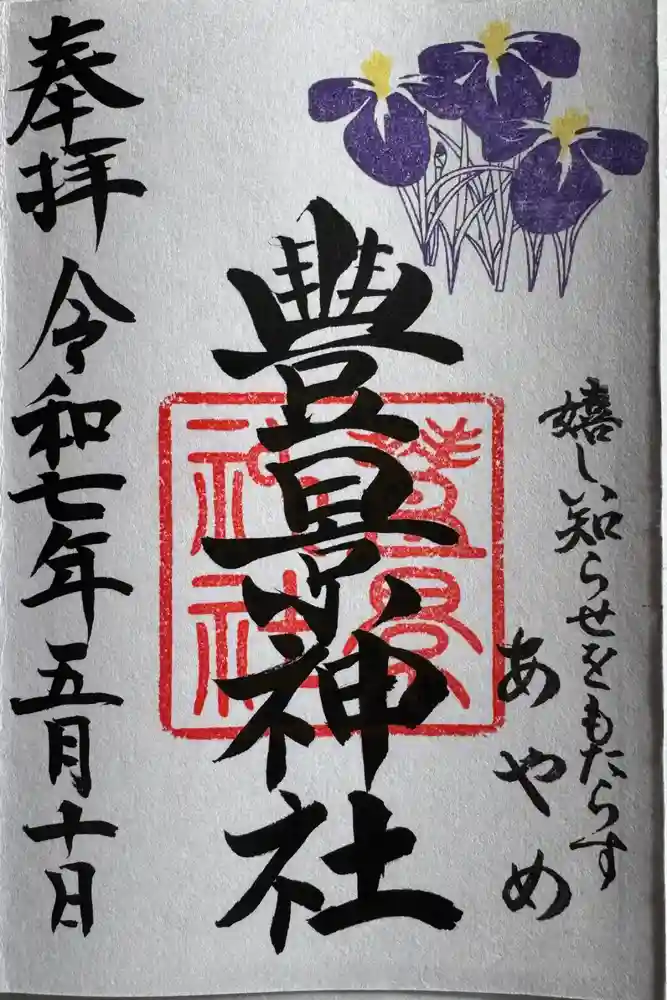 嬉しい知らせをもたらす
あやめ
豐景神社
豊景
神社
奉拝 令和七年五月十日